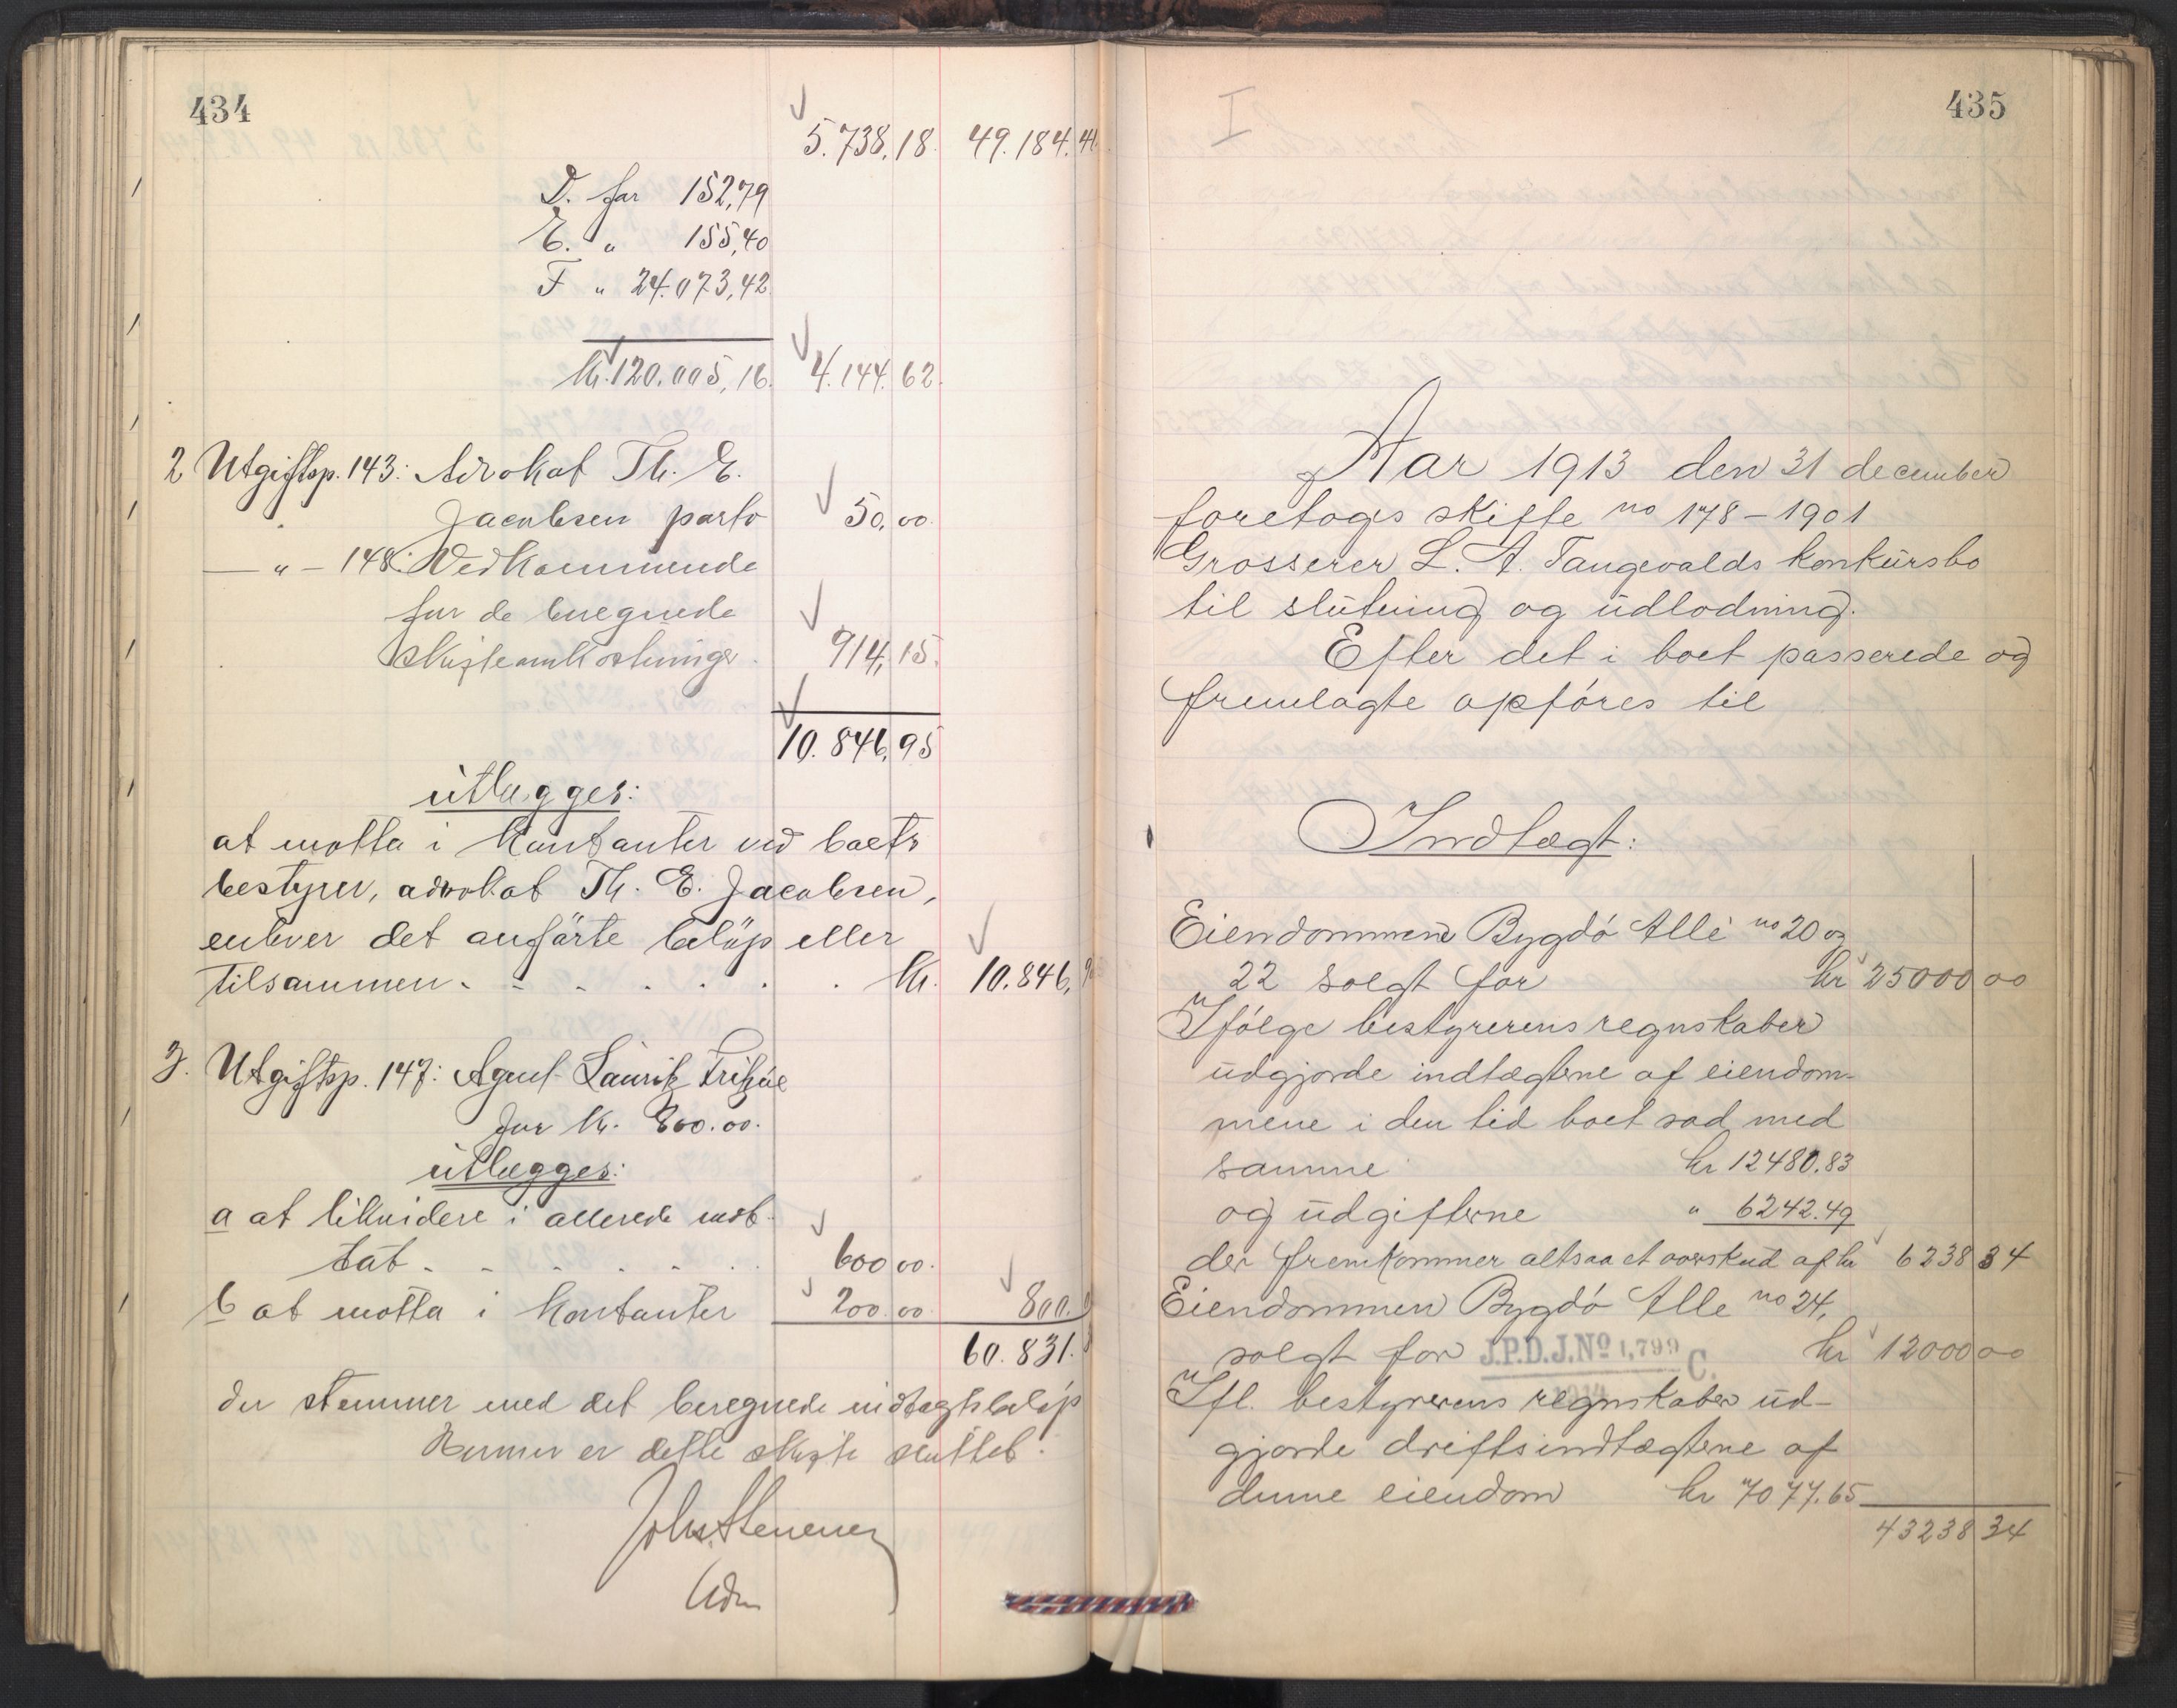 434
5.738,18. 49.184.41
D. for 152,79
E. " 155,40
F " 24.073,42
Kr. 120.005,16. 4.144.62.
2 Utgiftsp. 143: Advokat Th. E.
Jacobsen porto 50,00.
— " — 148: Vedkommende
for de beregnede
skifteomkostninger. 914,15.
10.846,95
utlægges:
at motta i kontanter ved boets
bestyrer, advokat Th. E. Jacobsen,
enhver det anførte beløp eller
tilsammen. - - . . . . Kr. 10.846,9
3. Utgiftsp. 147: Agent Lauritz
for kr. 800.00.
utlægges:
a at likvidere i allerede mot-
tat - - - - - . . 600 00.
b at motta i kontanter 200.00. 800.
60.831.
der stemmer med det beregnede indtægtsbeløp
Hermed er dette skifte sluttet.
435
I
Aar 1913 den 31 december
foretoges skifte no 178-1901
Grosserer L. A. Tangevalds konkursbo
til slutning og udlodning.
Efter det i boet passerede og
fremlagte opføres til
Indtægt:
Eiendommene Bygdø Allé no 20 og
22 solgt for kr 25000 00
Ifølge bestyrerens regnskaber
udgjorde indtægterne af eiendom-
mene i den tid boet sad med
samme kr 12480.83
og udgifterne " 6242.49
der fremkommer altsaa et overskud af kr 6238 34
Eiendommen Bygdø Alle no 24,
solgt for J.P.D.J.No 1,799 C. kr 12000 00
Ifl. bestyrerens regnskaber ud-
gjorde driftsindtægterne af
denne eiendom kr 7077.65
43238 34